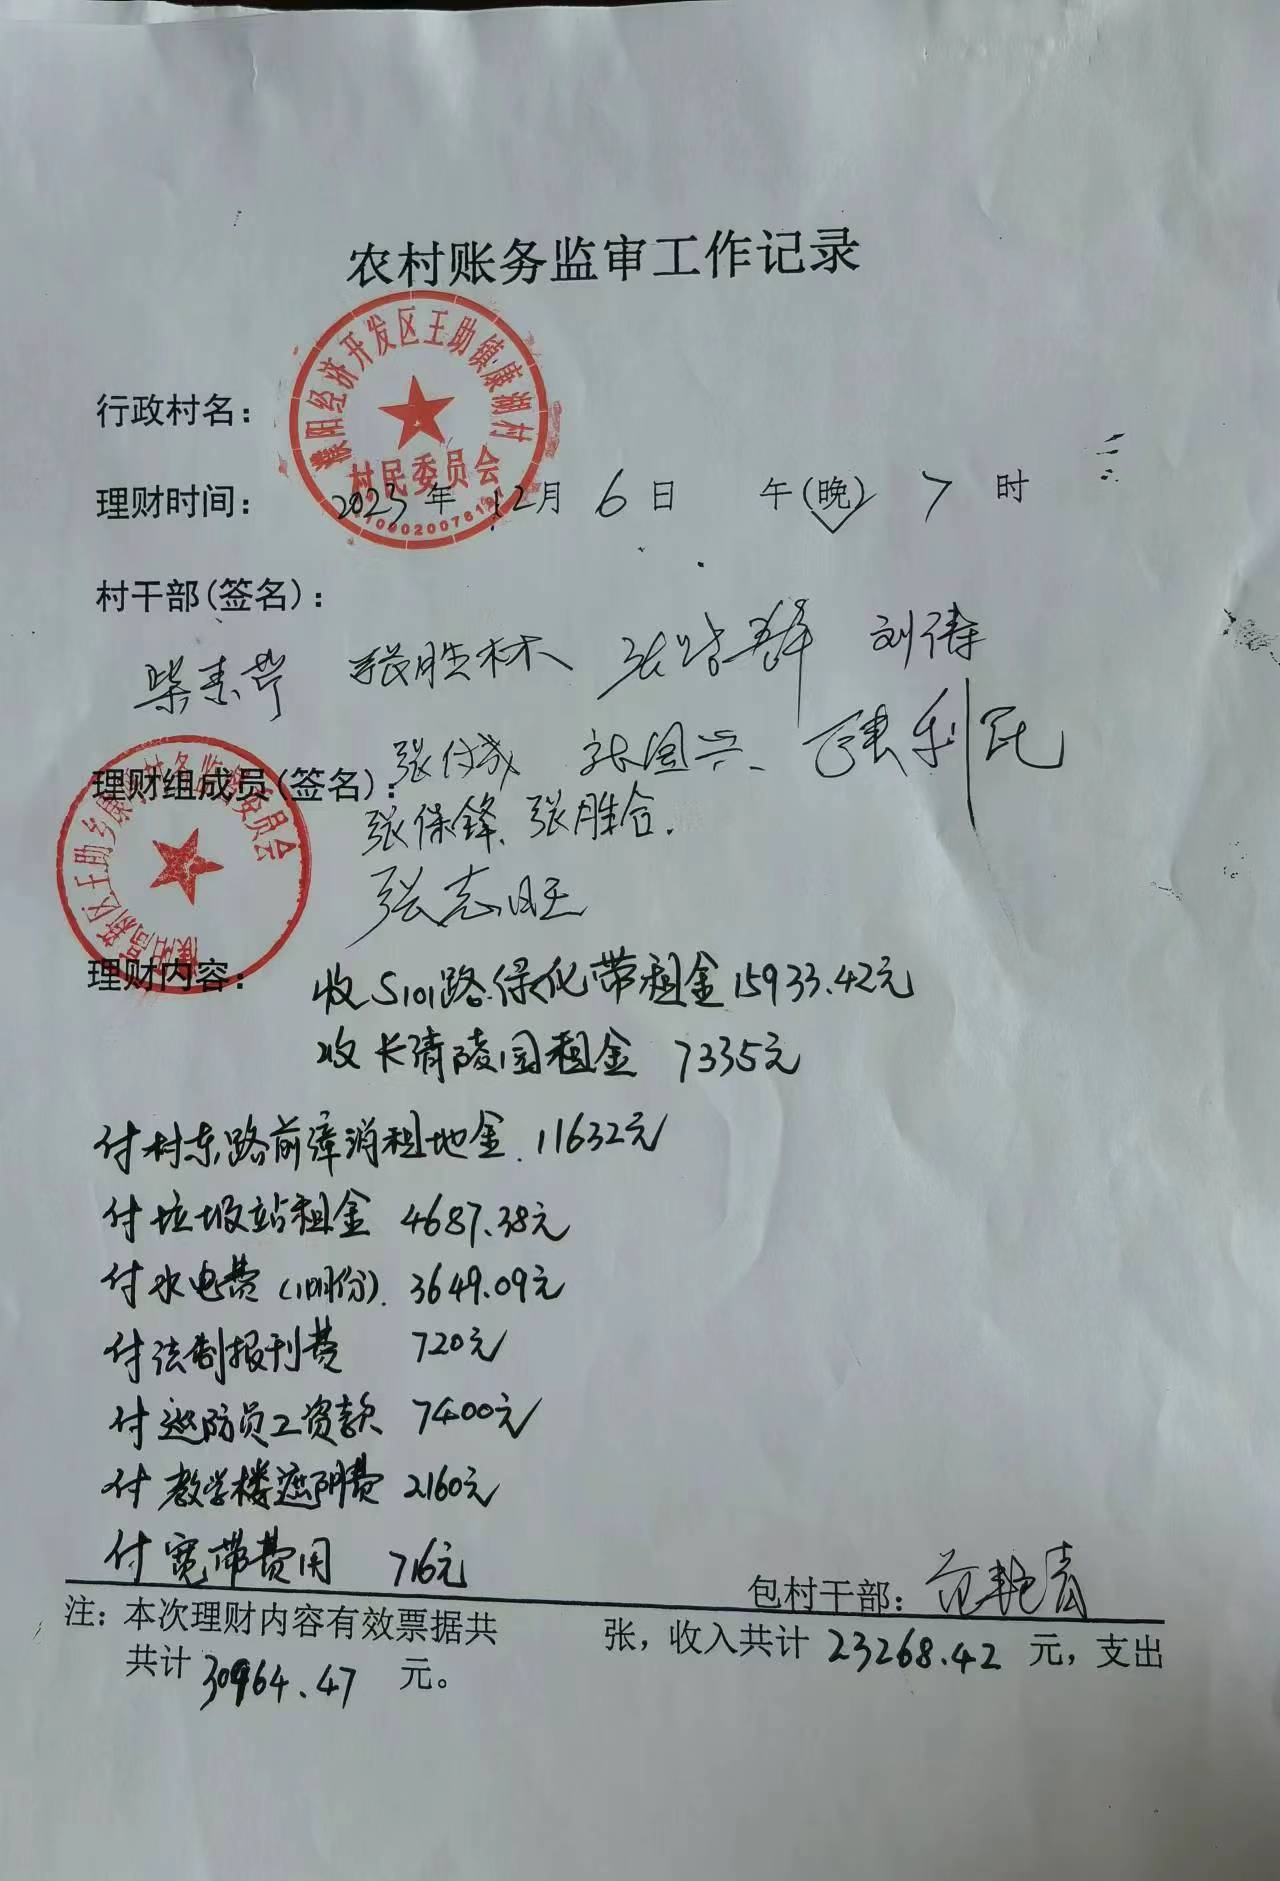 农村账务监审工作记录
濮阳经济开发区王助镇康湖村
村民委员会
行政村名：
理财时间： 2023年 12月 6日 午(晚) 7 时
村干部(签名)：
张胜林 刘
张付成 张国兴 利民
理财组成员(签名)：
张保锋、张胜合.
张志旺
区王助乡康 村务监督委员会
理财内容：
收S101路绿化带租金15933.42元
收长清陵园租金 7335元
付村东路前漳消租地金. 11632元
付垃圾站租金 4687.38元
付水电费(10月份). 3649.09元
付法制报刊费 720元
付巡防员工资款 7400元
付教学楼遮阴费 2160元
付宽带费用 716元
包村干部：范艳
注：本次理财内容有效票据共 张，收入共计 23268.42 元，支出
共计 30964.47 元。